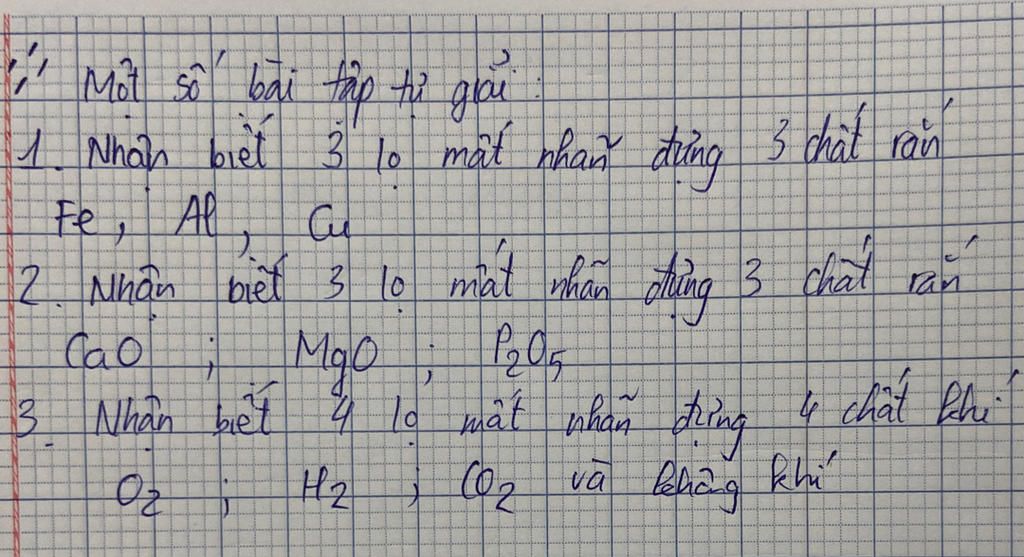 Một số bài tập tự giải:
1. Nhận biết 3 lọ mất nhãn đựng 3 chất rắn
Fe, Al, Cu
2. Nhận biết 3 lọ mất nhãn đựng 3 chất rắn
CaO ; MgO ; P₂O₅
3. Nhận biết 4 lọ mất nhãn đựng 4 chất khí
O₂ ; H₂ ; CO₂ và không khí